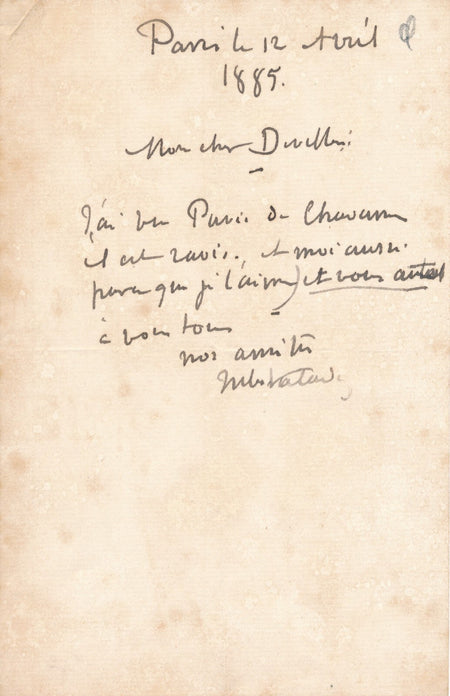 Paris le 12 Avril
1885.
Mon cher
J'ai vu Puvis de Chavannes
il est ravis. et moi aussi
parce que je l'aime) et vous autant
à vous tous
nos amitiés